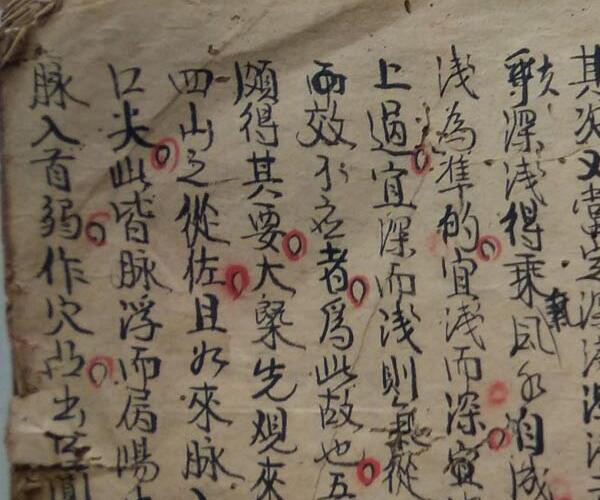 其次又當定深淺
歟深淺得乘風水自成
淺為準的宜淺而深宜
上過宜深而淺則氣從
而效不應者為此故也五
頗得其要大槩先观來
四山之從佐且如來脉入
口尖此皆脉浮而屬陽
脉入首弱作穴凸出